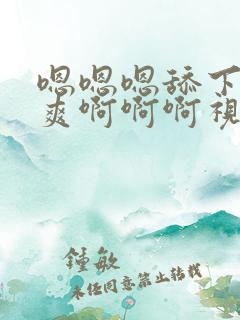 嗯嗯嗯舔下
爽啊啊啊視
鍾敏
未任同意禁止转载